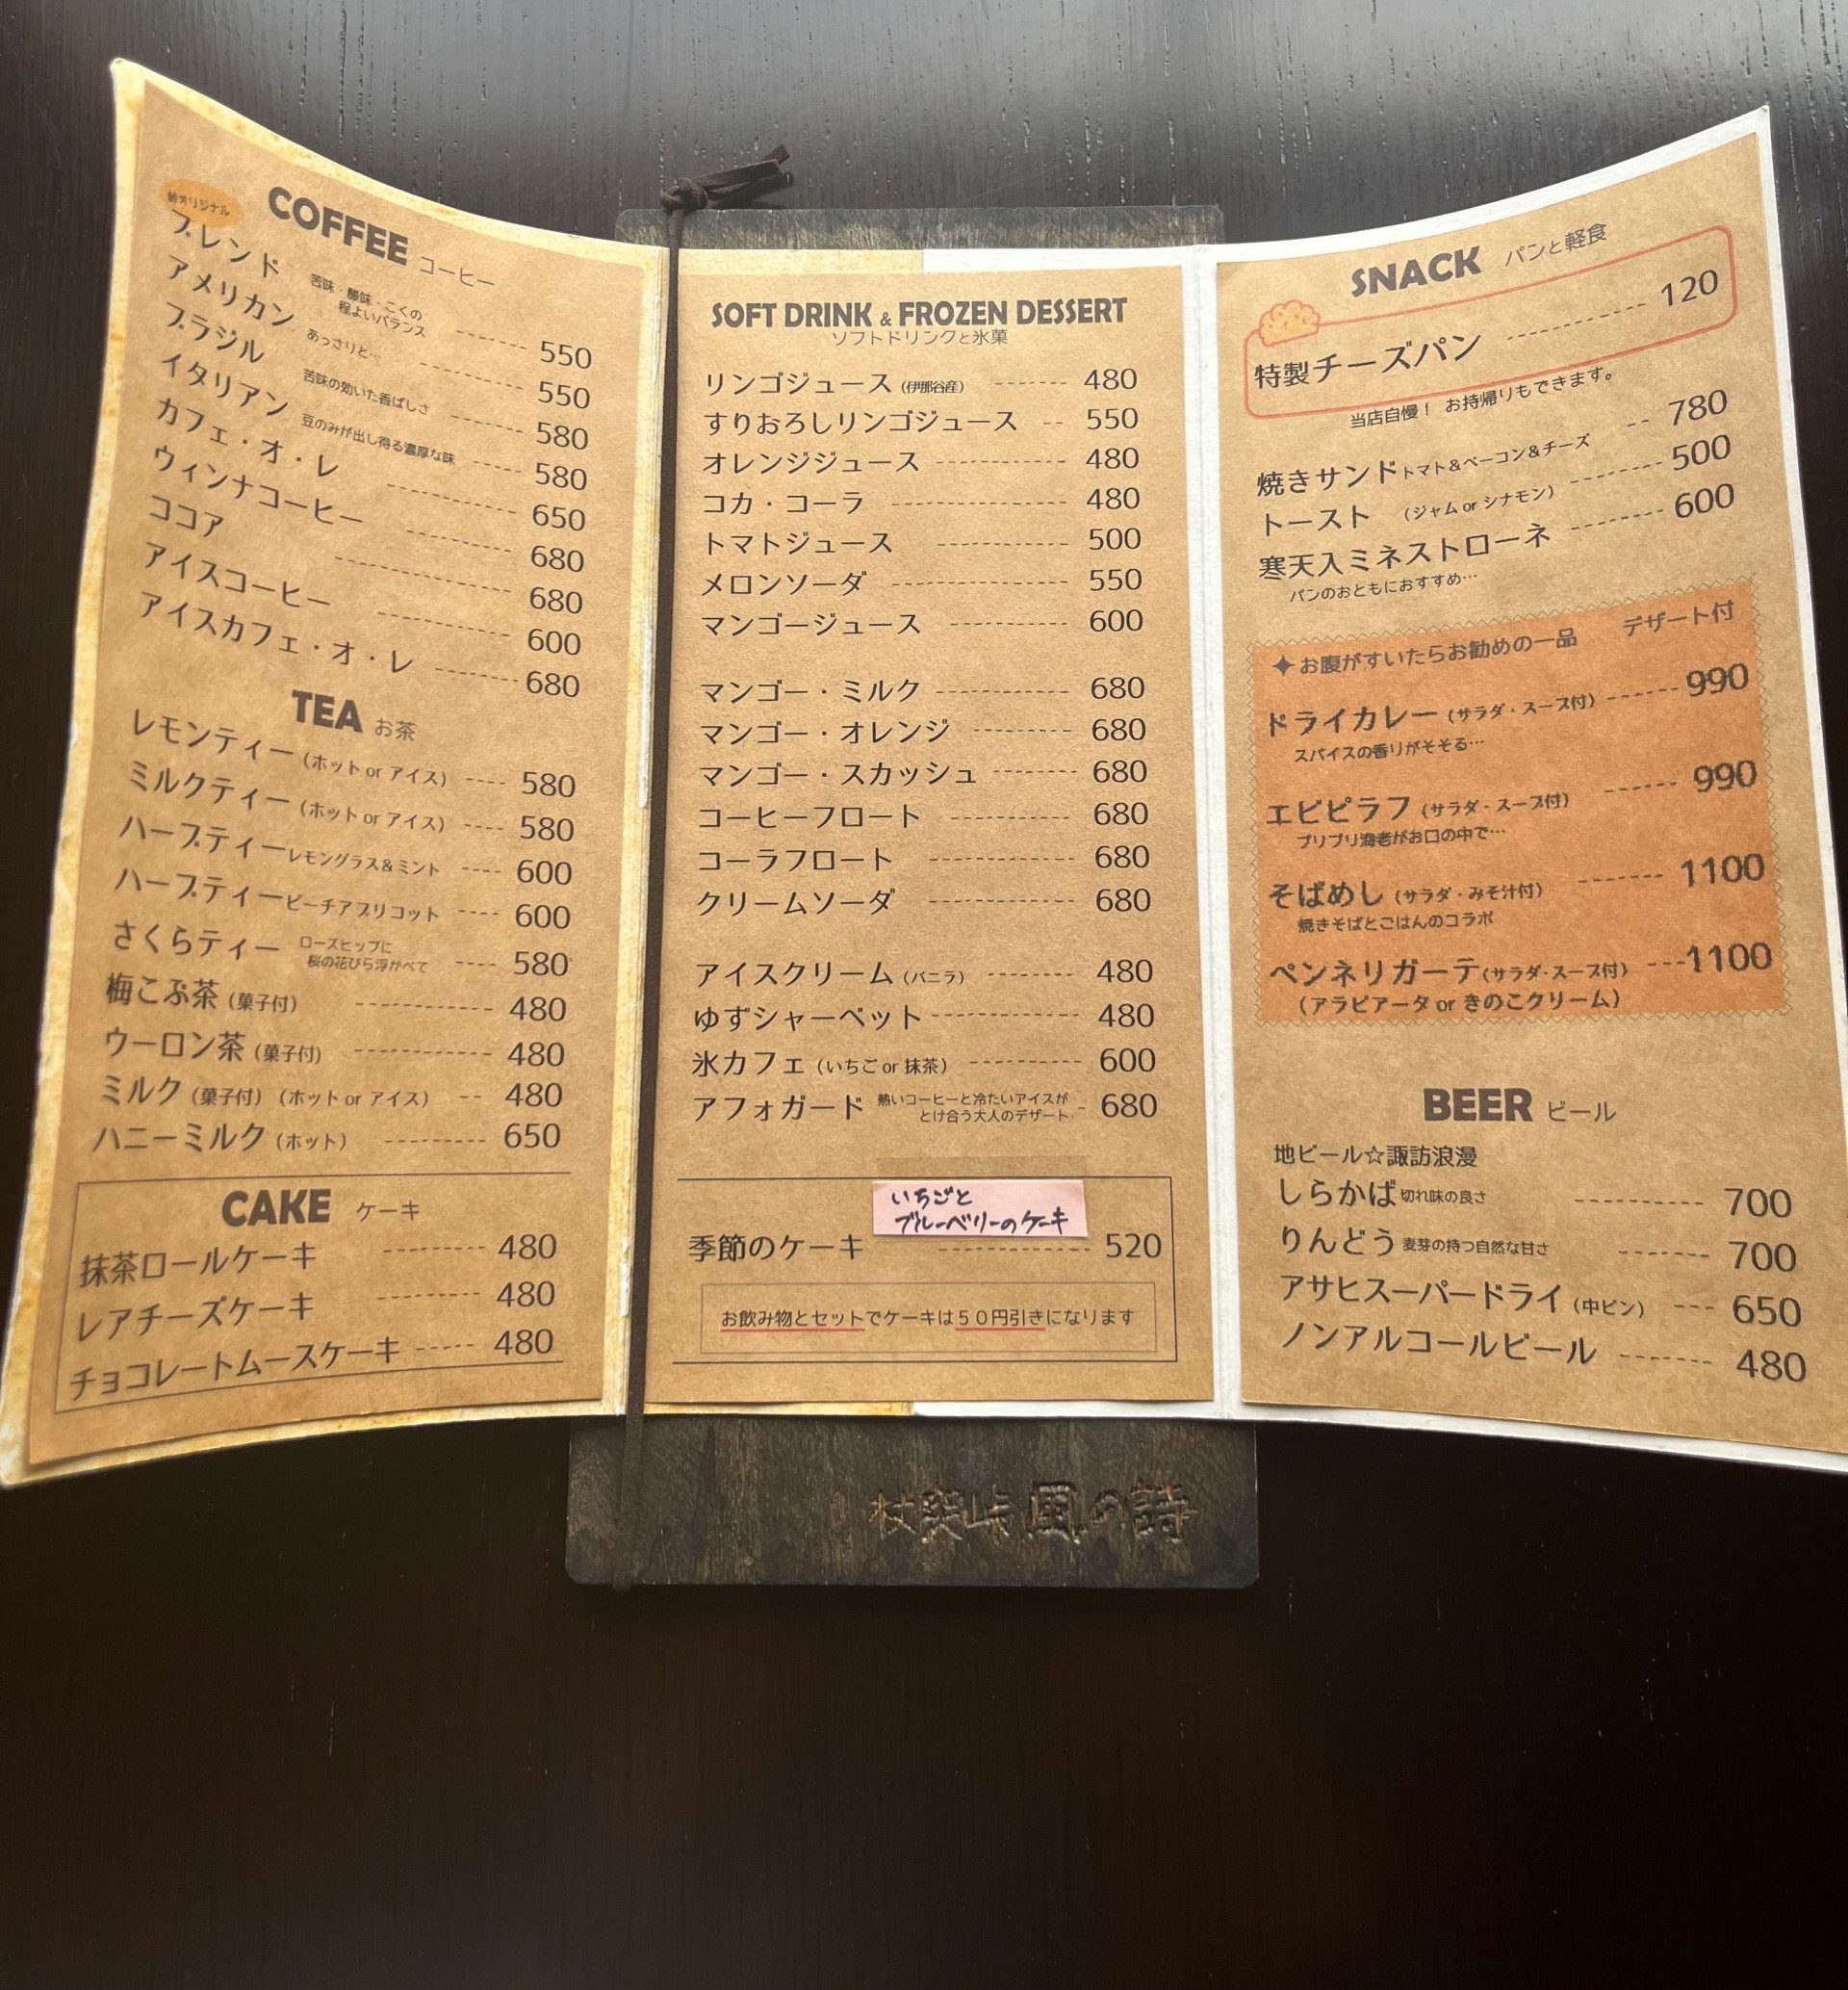 COFFEE コーヒー
オリジナル
ブレンド 苦味・酸味・こくの
程よいバランス ------- 550
アメリカン あっさりと… ------- 550
ブラジル 苦味の効いた香ばしさ ------ 580
イタリアン 豆のみが出し得る濃厚な味 ----- 580
カフェ・オ・レ ---------- 650
ウィンナコーヒー -------- 680
ココア ------------- 680
アイスコーヒー ---------- 600
アイスカフェ・オ・レ ------ 680
TEA お茶
レモンティー (ホット or アイス) ---- 580
ミルクティー (ホット or アイス) ---- 580
ハーブティー レモングラス&ミント ---- 600
ハーブティー ピーチアプリコット ---- 600
さくらティー ローズヒップに
桜の花びら浮かべて ---- 580
梅こぶ茶 (菓子付) ---------- 480
ウーロン茶 (菓子付) ---------- 480
ミルク (菓子付) (ホット or アイス) -- 480
ハニーミルク (ホット) -------- 650
CAKE ケーキ
抹茶ロールケーキ -------- 480
レアチーズケーキ -------- 480
チョコレートムースケーキ ----- 480
SOFT DRINK & FROZEN DESSERT
ソフトドリンクと氷菓
リンゴジュース (伊那谷産) ------- 480
すりおろしリンゴジュース -- 550
オレンジジュース ---------- 480
コカ・コーラ ------------- 480
トマトジュース ---------- 500
メロンソーダ ------------- 550
マンゴージュース --------- 600
マンゴー・ミルク ---------- 680
マンゴー・オレンジ -------- 680
マンゴー・スカッシュ ------- 680
コーヒーフロート ---------- 680
コーラフロート ----------- 680
クリームソーダ ----------- 680
アイスクリーム (バニラ) ------- 480
ゆずシャーベット ------------ 480
氷カフェ (いちご or 抹茶) --------- 600
アフォガード 熱いコーヒーと冷たいアイスが
とけ合う大人のデザート - 680
いちごと
ブルーベリーのケーキ
季節のケーキ ------------ 520
お飲み物とセットでケーキは５０円引きになります
SNACK パンと軽食
特製チーズパン ------------ 120
当店自慢！ お持帰りもできます。
焼きサンド トマト&ベーコン&チーズ -- 780
トースト (ジャム or シナモン) ------- 500
寒天入ミネストローネ ------- 600
パンのおともにおすすめ…
✦お腹がすいたらお勧めの一品 デザート付
ドライカレー (サラダ・スープ付) ------ 990
スパイスの香りがそそる…
エビピラフ (サラダ・スープ付) ------ 990
プリプリ海老がお口の中で…
そばめし (サラダ・みそ汁付) ------- 1100
焼きそばとごはんのコラボ
ペンネリガーテ (サラダ・スープ付) ---1100
(アラビアータ or きのこクリーム)
BEER ビール
地ビール☆諏訪浪漫
しらかば 切れ味の良さ ----------- 700
りんどう 麦芽の持つ自然な甘さ ------- 700
アサヒスーパードライ (中ビン) --- 650
ノンアルコールビール ------- 480
杖突峠 風の詩